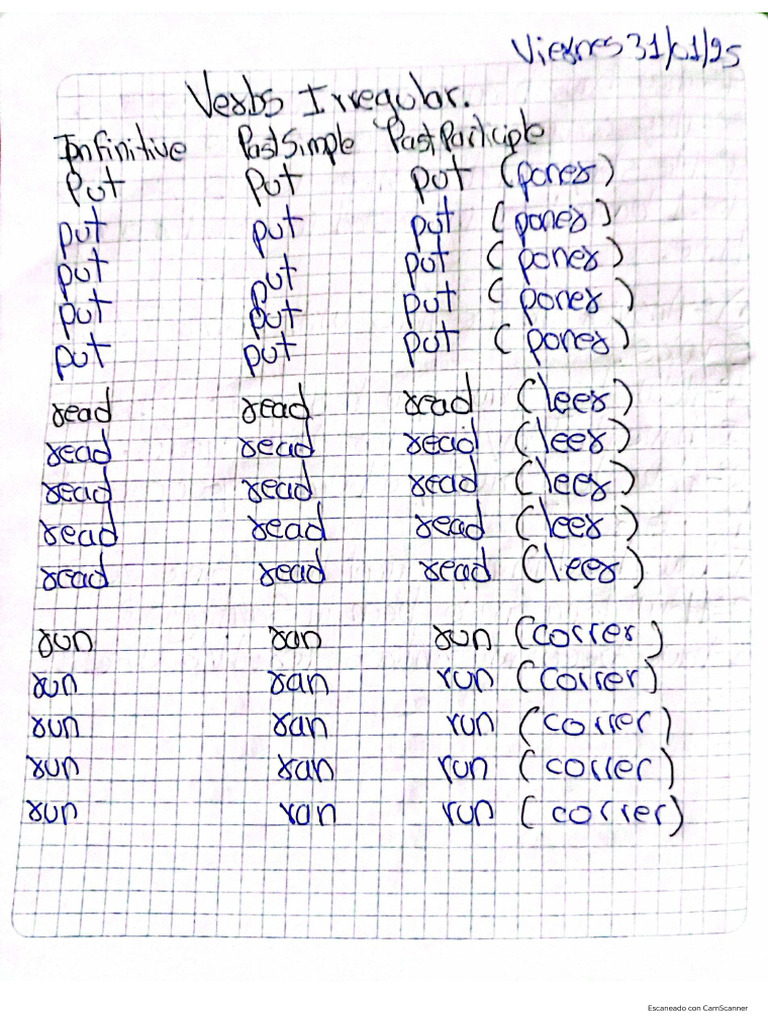 Viernes 31/01/25
Verbs Irregular.
Infinitive Past Simple Past Participle
Put Put put (poner)
put put put (poner)
put put put (poner)
put put put (poner)
put put put (poner)
read read read (leer)
read read read (leer)
read read read (leer)
read read read (leer)
read read read (leer)
run ran run (correr)
run ran run (correr)
run ran run (correr)
run ran run (correr)
run ran run (correr)
Escaneado con CamScanner